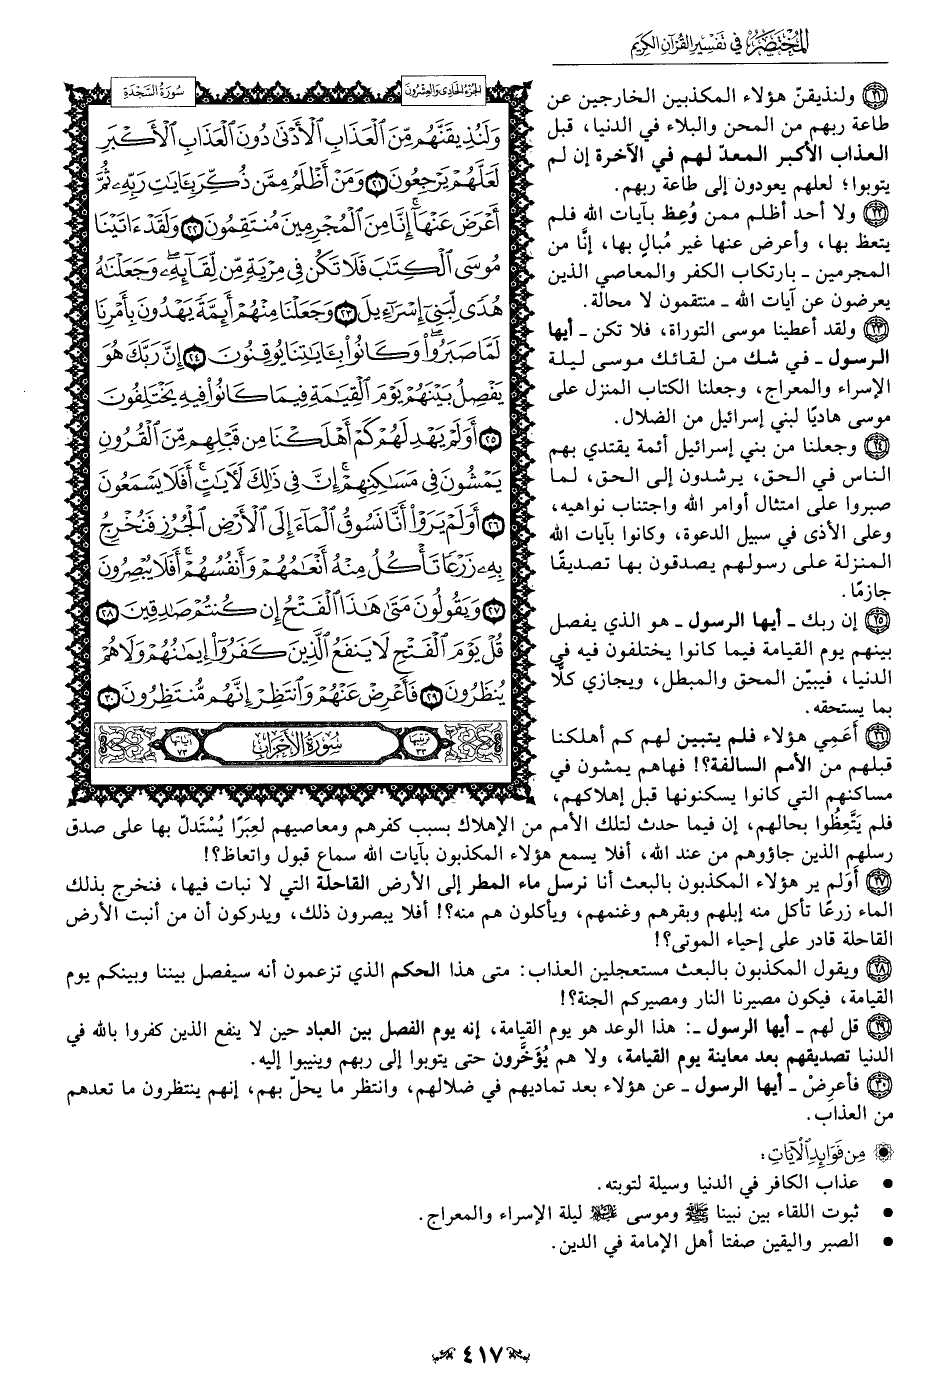 المختصر في تفسير القرآن الكريم
الجزء الحادي والعشرون
سورة السجدة
وَلَنُذِيقَنَّهُم مِّنَ ٱلْعَذَابِ ٱلْأَدْنَىٰ دُونَ ٱلْعَذَابِ ٱلْأَكْبَرِ
لَعَلَّهُمْ يَرْجِعُونَ ٢١ وَمَنْ أَظْلَمُ مِمَّن ذُكِّرَ بِـَٔايَٰتِ رَبِّهِۦ ثُمَّ
أَعْرَضَ عَنْهَآ إِنَّا مِنَ ٱلْمُجْرِمِينَ مُنتَقِمُونَ ٢٢ وَلَقَدْ ءَاتَيْنَا
مُوسَى ٱلْكِتَٰبَ فَلَا تَكُن فِى مِرْيَةٍ مِّن لِّقَآئِهِۦ وَجَعَلْنَٰهُ
هُدًى لِّبَنِىٓ إِسْرَٰٓءِيلَ ٢٣ وَجَعَلْنَا مِنْهُمْ أَئِمَّةً يَهْدُونَ بِأَمْرِنَا
لَمَّا صَبَرُوا۟ وَكَانُوا۟ بِـَٔايَٰتِنَا يُوقِنُونَ ٢٤ إِنَّ رَبَّكَ هُوَ
يَفْصِلُ بَيْنَهُمْ يَوْمَ ٱلْقِيَٰمَةِ فِيمَا كَانُوا۟ فِيهِ يَخْتَلِفُونَ
٢٥ أَوَلَمْ يَهْدِ لَهُمْ كَمْ أَهْلَكْنَا مِن قَبْلِهِم مِّنَ ٱلْقُرُونِ
يَمْشُونَ فِى مَسَٰكِنِهِمْ إِنَّ فِى ذَٰلِكَ لَـَٔايَٰتٍ أَفَلَا يَسْمَعُونَ
٢٦ أَوَلَمْ يَرَوْا۟ أَنَّا نَسُوقُ ٱلْمَآءَ إِلَى ٱلْأَرْضِ ٱلْجُرُزِ فَنُخْرِجُ
بِهِۦ زَرْعًا تَأْكُلُ مِنْهُ أَنْعَٰمُهُمْ وَأَنفُسُهُمْ أَفَلَا يُبْصِرُونَ
٢٧ وَيَقُولُونَ مَتَىٰ هَٰذَا ٱلْفَتْحُ إِن كُنتُمْ صَٰدِقِينَ ٢٨
قُلْ يَوْمَ ٱلْفَتْحِ لَا يَنفَعُ ٱلَّذِينَ كَفَرُوٓا۟ إِيمَٰنُهُمْ وَلَا هُمْ
يُنظَرُونَ ٢٩ فَأَعْرِضْ عَنْهُمْ وَٱنتَظِرْ إِنَّهُم مُّنتَظِرُونَ ٣٠
ترتيبها ٣٣
سورة الأحزاب
آياتها ٧٣
٢١ ولنذيقنّ هؤلاء المكذبين الخارجين عن
طاعة ربهم من المحن والبلاء في الدنيا، قبل
العذاب الأكبر المعدّ لهم في الآخرة إن لم
يتوبوا؛ لعلهم يعودون إلى طاعة ربهم.
٢٢ ولا أحد أظلم ممن وُعِظ بآيات الله فلم
يتعظ بها، وأعرض عنها غير مُبالٍ بها، إنَّا من
المجرمين ـ بارتكاب الكفر والمعاصي الذين
يعرضون عن آيات الله ـ منتقمون لا محالة.
٢٣ ولقد أعطينا موسى التوراة، فلا تكن ـ أيها
الرسول ـ في شك من لقائك موسى ليلة
الإسراء والمعراج، وجعلنا الكتاب المنزل على
موسى هاديًا لبني إسرائيل من الضلال.
٢٤ وجعلنا من بني إسرائيل أئمة يقتدي بهم
الناس في الحق، يرشدون إلى الحق، لما
صبروا على امتثال أوامر الله واجتناب نواهيه،
وعلى الأذى في سبيل الدعوة، وكانوا بآيات الله
المنزلة على رسولهم يصدقون بها تصديقًا
جازمًا.
٢٥ إن ربك ـ أيها الرسول ـ هو الذي يفصل
بينهم يوم القيامة فيما كانوا يختلفون فيه في
الدنيا، فيبيّن المحق والمبطل، ويجازي كلًّا
بما يستحقه.
٢٦ أَعَمِي هؤلاء فلم يتبين لهم كم أهلكنا
قبلهم من الأمم السالفة؟! فهاهم يمشون في
مساكنهم التي كانوا يسكنونها قبل إهلاكهم،
فلم يَتَّعِظُوا بحالهم، إن فيما حدث لتلك الأمم من الإهلاك بسبب كفرهم ومعاصيهم لعِبَرًا يُسْتَدلّ بها على صدق
رسلهم الذين جاؤوهم من عند الله، أفلا يسمع هؤلاء المكذبون بآيات الله سماع قبول واتعاظ؟!
٢٧ أوَلم ير هؤلاء المكذبون بالبعث أنا نرسل ماء المطر إلى الأرض القاحلة التي لا نبات فيها، فنخرج بذلك
الماء زرعًا تأكل منه إبلهم وبقرهم وغنمهم، ويأكلون هم منه؟! أفلا يبصرون ذلك، ويدركون أن من أنبت الأرض
القاحلة قادر على إحياء الموتى؟!
٢٨ ويقول المكذبون بالبعث مستعجلين العذاب: متى هذا الحكم الذي تزعمون أنه سيفصل بيننا وبينكم يوم
القيامة، فيكون مصيرنا النار ومصيركم الجنة؟!
٢٩ قل لهم ـ أيها الرسول ـ: هذا الوعد هو يوم القيامة، إنه يوم الفصل بين العباد حين لا ينفع الذين كفروا بالله في
الدنيا تصديقهم بعد معاينة يوم القيامة، ولا هم يُؤَخَّرون حتى يتوبوا إلى ربهم وينيبوا إليه.
٣٠ فأعرِضْ ـ أيها الرسول ـ عن هؤلاء بعد تماديهم في ضلالهم، وانتظر ما يحلّ بهم، إنهم ينتظرون ما تعدهم
من العذاب.
من فوائد الآيات:
• عذاب الكافر في الدنيا وسيلة لتوبته.
• ثبوت اللقاء بين نبينا ﷺ وموسى عليه السلام ليلة الإسراء والمعراج.
• الصبر واليقين صفتا أهل الإمامة في الدين.
٤١٧